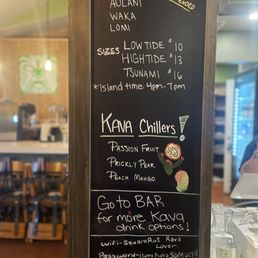 AULANI
WAKA
LOMI
SIZES LOW TIDE $10
HIGH TIDE $13
TSUNAMI $16
*Island time 4pm-7pm
KAVA Chillers!
PASSION FRUIT
PRICKLY PEAR
PEACH MANGO
Go to BAR
for more Kava
drink options!
Wifi-SquareRut Kava
Lover